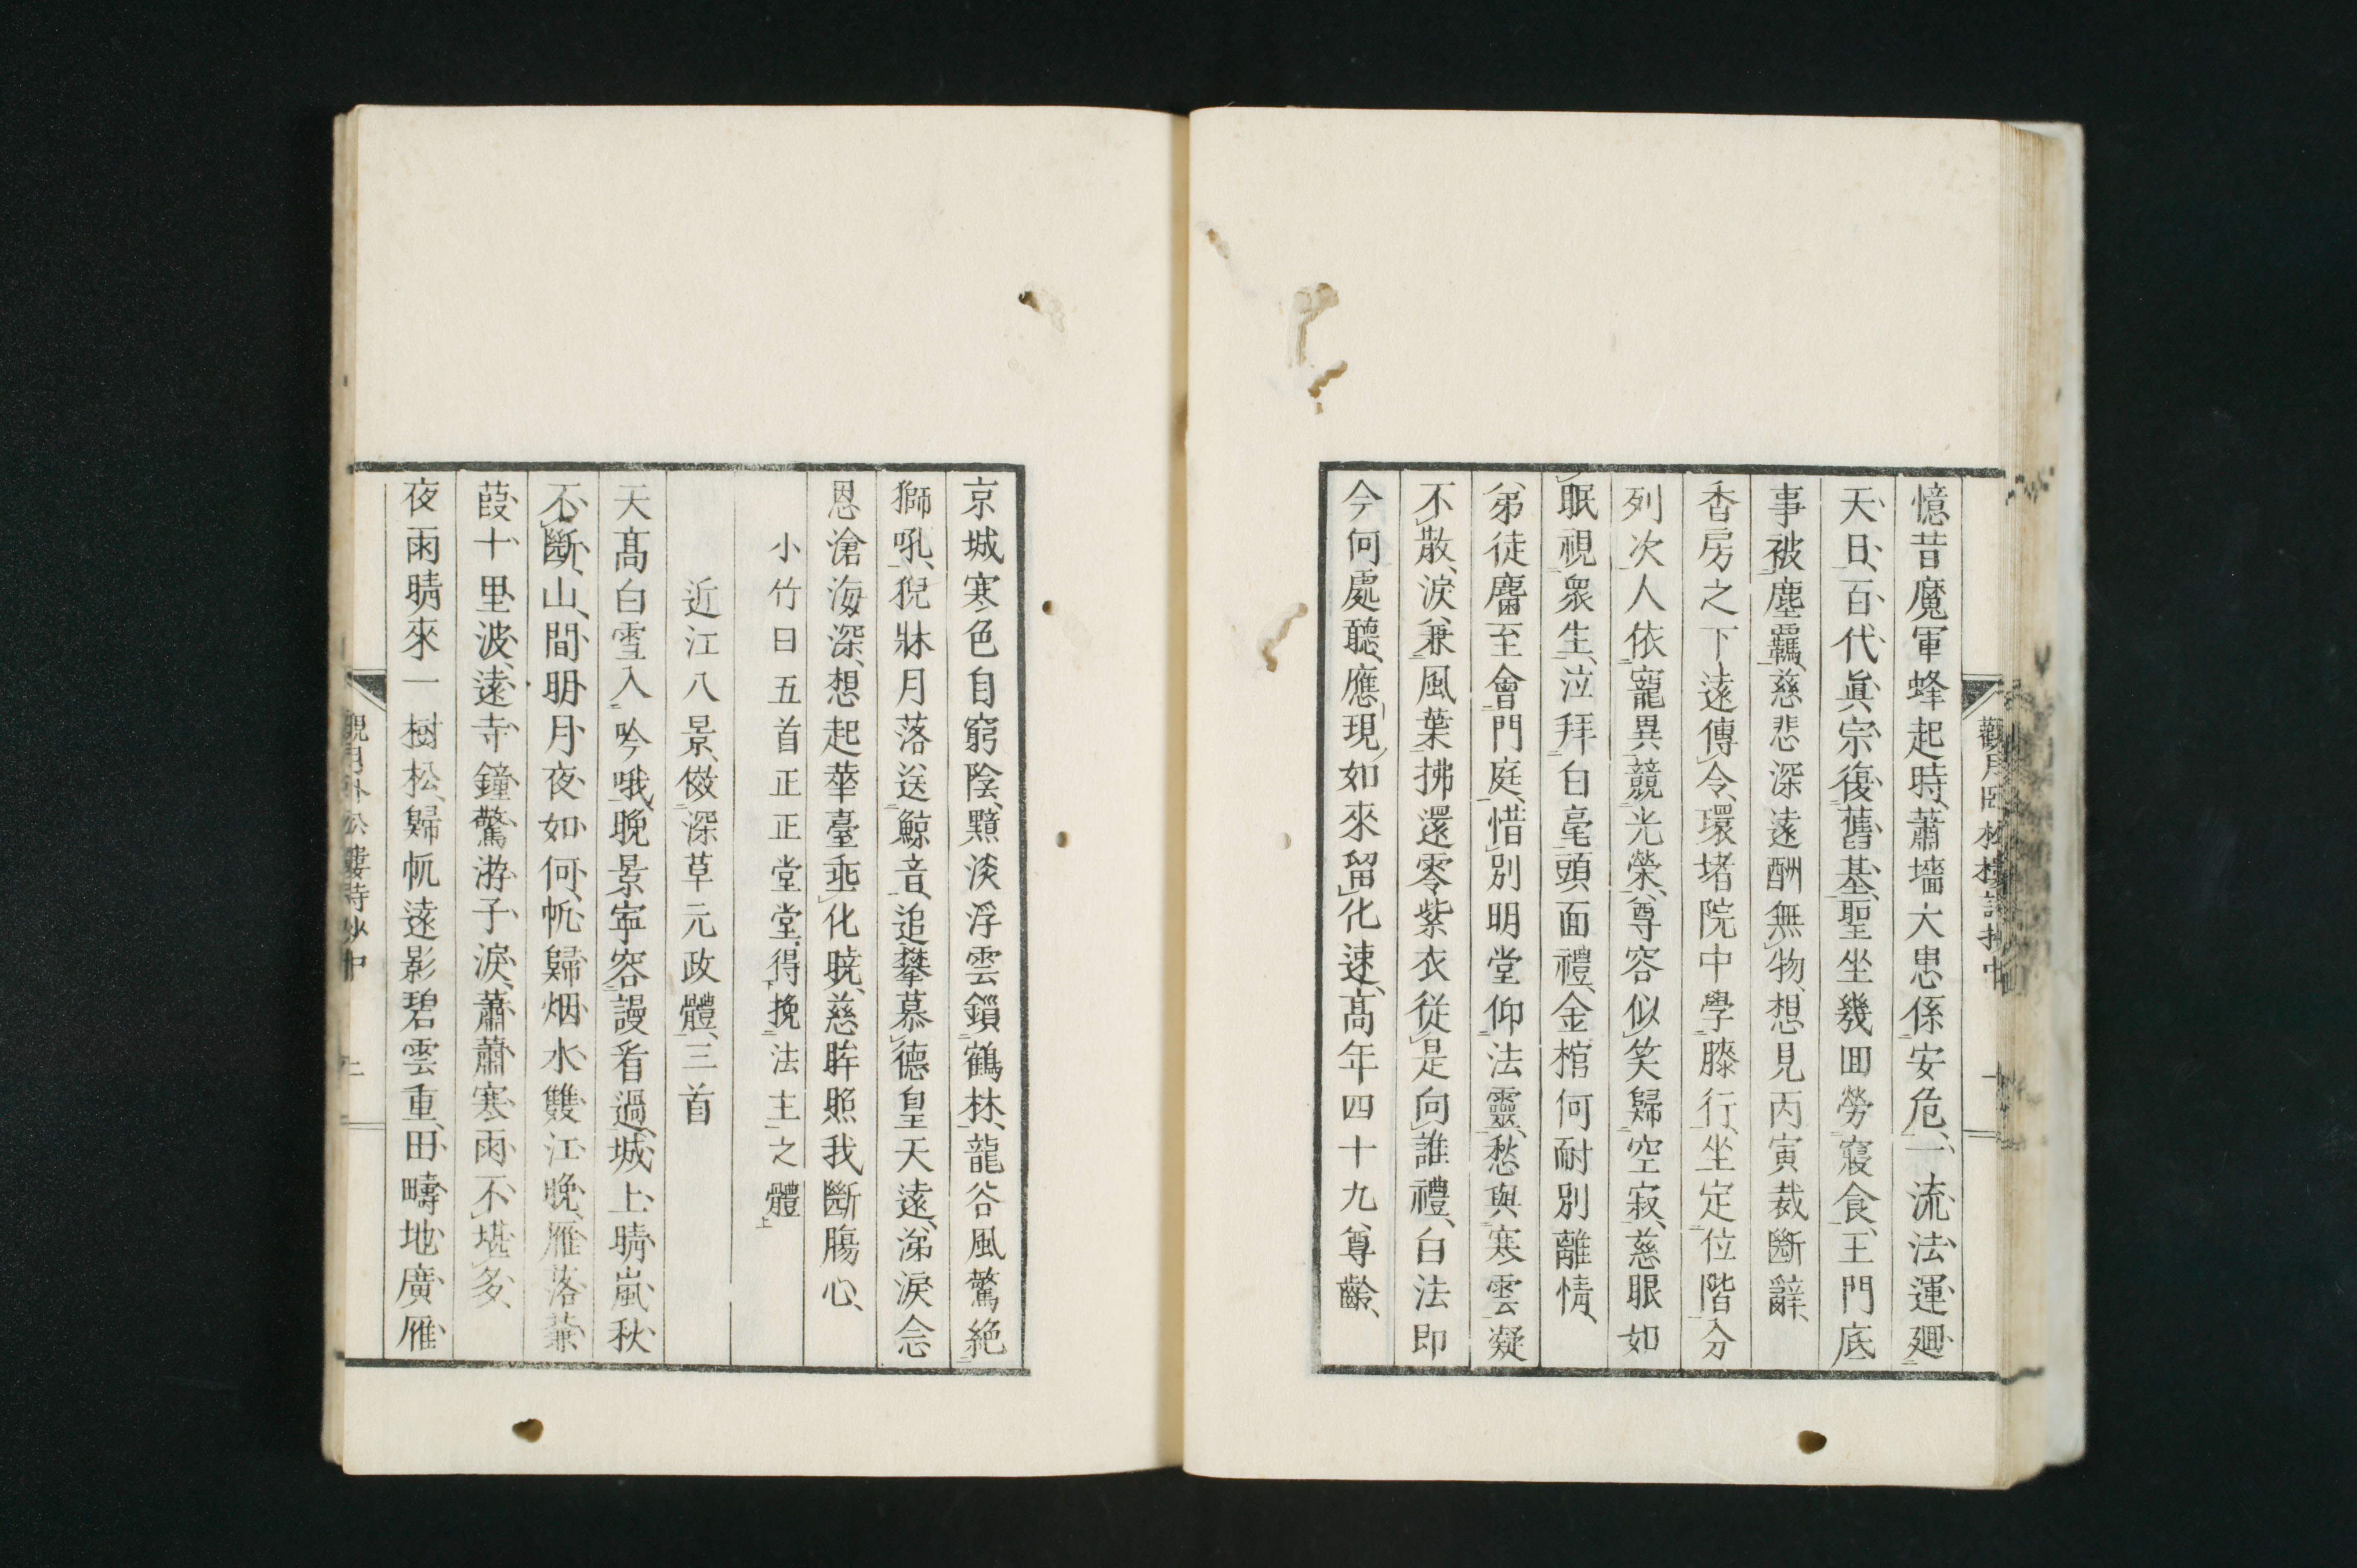 憶昔魔軍蜂起時、蕭墻大患係安危、一流法運廻
天日、百代眞宗復舊基、聖坐幾囬勞寢食、王門底
事被塵羈、慈悲深遠酬無物、想見丙寅裁斷辭、
香房之下遠傳令、環堵院中學膝行、坐定位階分
列次、人依寵異競光榮、尊容似笑歸空寂、慈眼如
眠視衆生、泣拜白毫頭面禮、金棺何耐別離情、
弟徒麕至會門庭、惜別明堂仰法靈、愁與寒雲凝
不散、淚兼風葉拂還零、紫衣從是向誰禮、白法即
今何處聽、應現如來留化速、高年四十九尊齡、
京城寒色自窮陰、黯淡浮雲鎻鶴林、龍谷風驚絶
獅吼、猊牀月落送鯨音、追攀慕德皇天遠、涕淚念
恩滄海深、想起華臺乖化曉、慈眸照我斷膓心、
小竹曰五首正正堂堂、得挽法主之體
近江八景、傚深草元政體、三首
天高白雪入吟哦、晚景寧容謾看過、城上晴嵐秋
不斷、山間明月夜如何、帆歸烟水雙江晚、雁落蒹
葭十里波、遠寺鐘驚游子淚、蕭蕭寒雨不堪多、
夜雨晴來一樹松、歸帆遠影碧雲重、田疇地廣雁